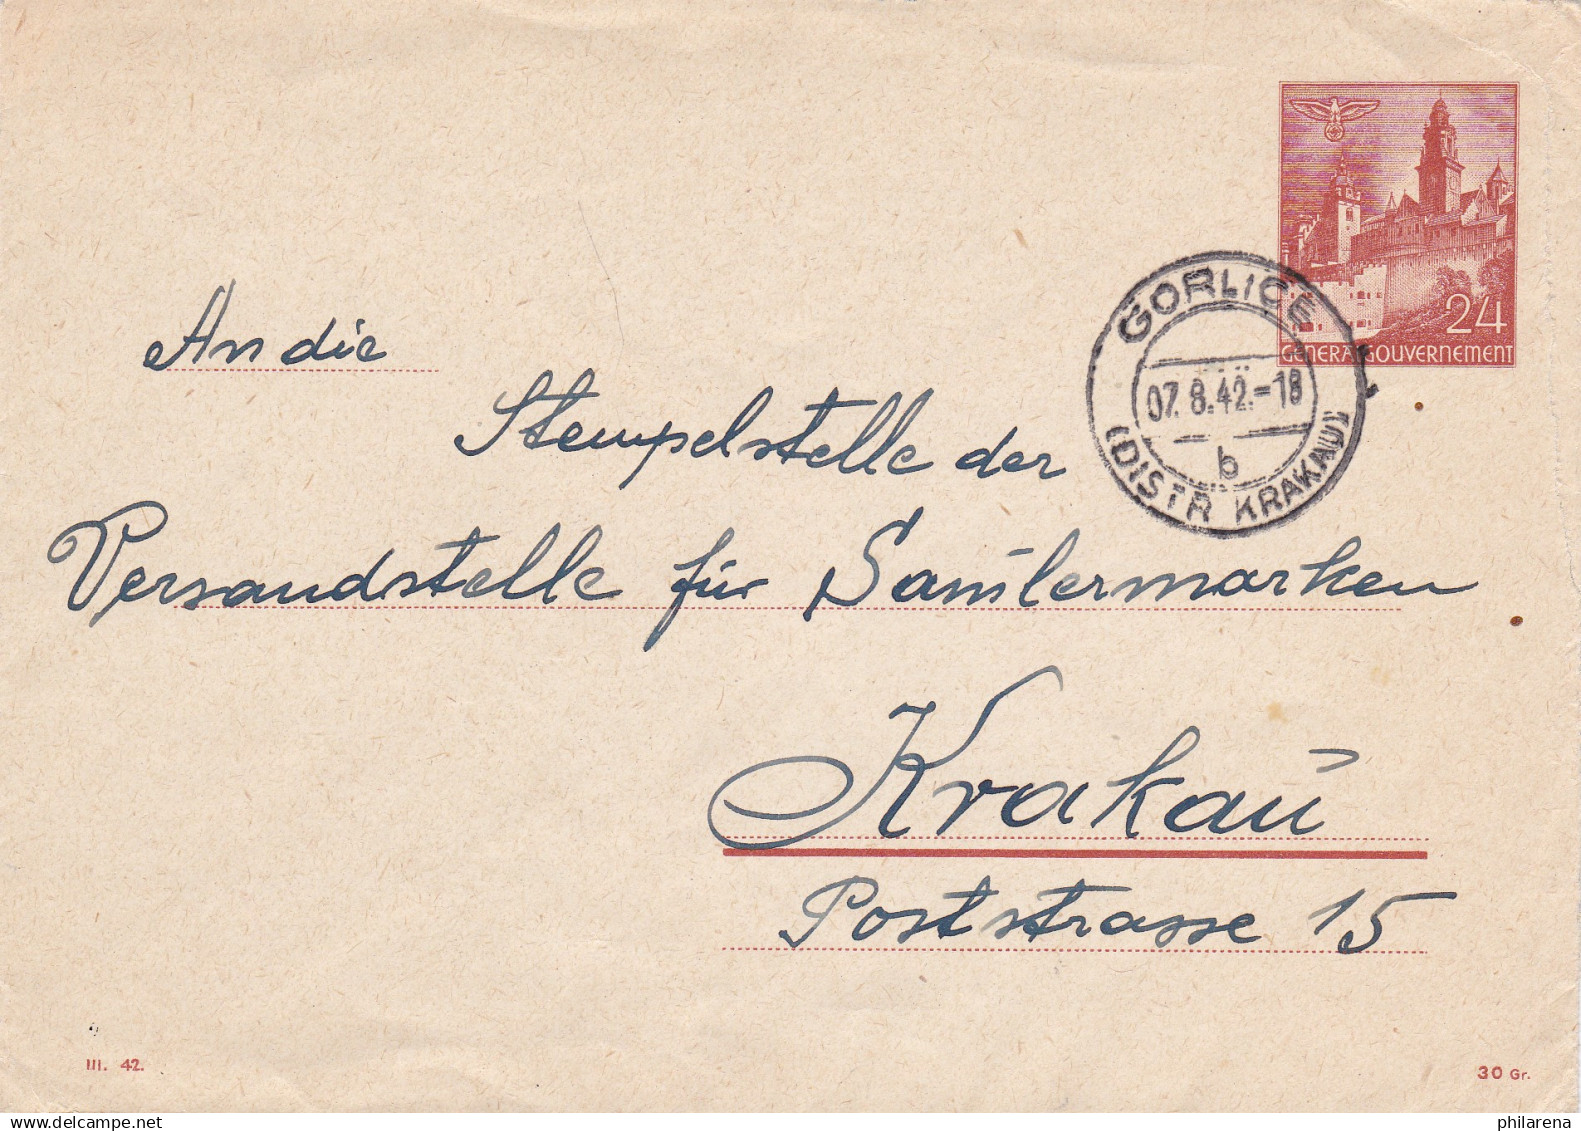 24
GENERALGOUVERNEMENT
GORLICE
07.8.42.-18
b
(DISTR KRAKAU)
An die
Stempelstelle der
Versandstelle für Sam̄lermarken
Krakau
Poststrasse 15
III. 42.
30 Gr.
philarena.com
philarena